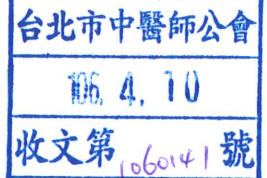 台北市中醫師公會
106. 4. 10
收文第1060141號